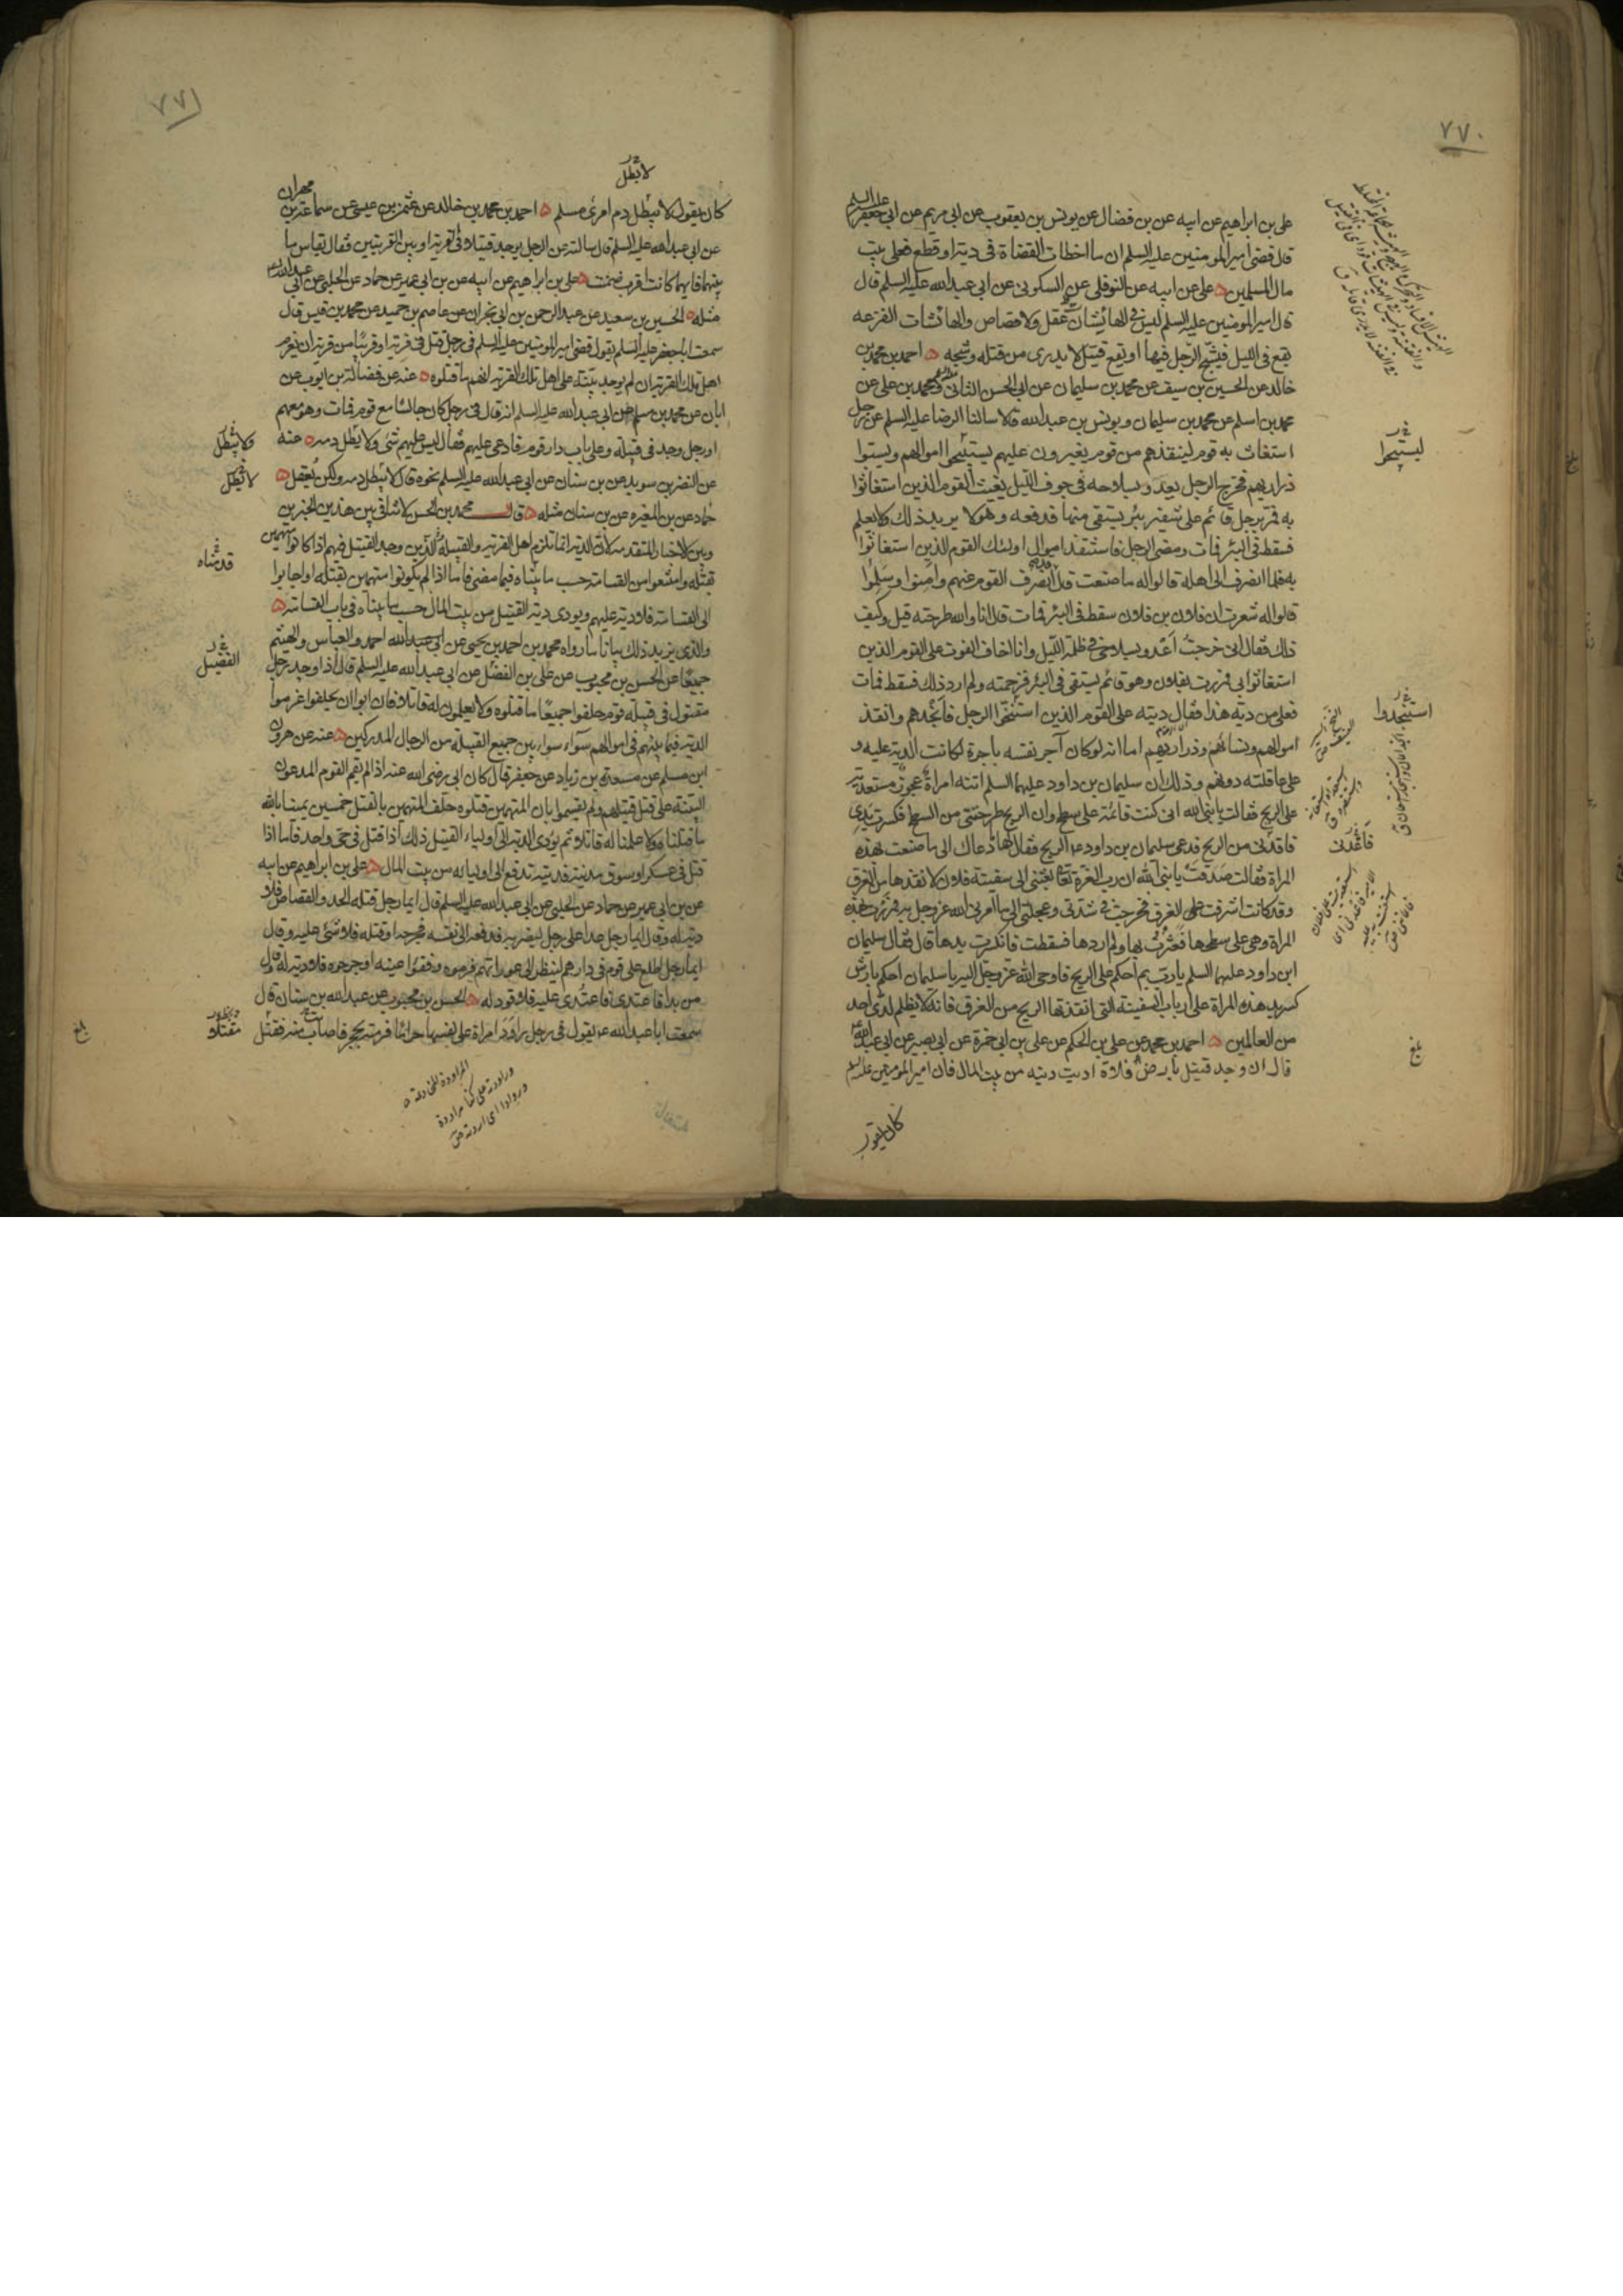 ٧٧٠
علي بن ابراهيم عن ابيه عن بن فضال عن يونس بن يعقوب عن ابي مريم عن ابي جعفر عليه السلم
قال قضى امير المومنين عليه السلم ان ما اخطات القضاة في دية او قطع فعلى بيت
مال المسلمين علي عن ابيه عن النوفلي عن السكوني عن ابي عبد الله عليه السلم قال
قال امير المومنين عليه السلم ليس في الهائشات عقل ولا قصاص والهائشات الفزعه
يقع في الليل فيشج الرجل فيها او يقع قتيل لا يدرى من قتله وشجه احمد بن محمد بن
خالد عن الحسين بن سيف عن محمد بن سليمان عن ابي الحسن الثاني ومحمد بن علي عن
محمد بن اسلم عن محمد بن سليمان ويونس بن عبد الله قالا سالنا الرضا عليه السلم عن رجل
استغاث به قوم لينقذهم من قوم يغيرون عليهم يستبيحوا اموالهم ويسبوا
ذراريهم فخرج الرجل يعدو بسلاحه في جوف الليل يغيث القوم الذين استغاثوا
به فمر برجل قائم على شفير بئر يستقي منها فدفعه وهو لا يريد ذلك ولا يعلم
فسقط في البئر فمات ومضى الرجل فاستنقذ اموال اولئك القوم الذين استغاثوا
به فلما انصرف الى اهله قالوا له ما صنعت قال انصرف القوم عنهم وامنوا وسلموا
قالوا له شعرت ان فلان بن فلان سقط في البئر فمات قال انا والله طرحته قيل وكيف
ذلك فقال اني خرجت أعدو بسلاحي في ظلمة الليل وانا اخاف الفوت على القوم الذين
استغاثوا بي فمررت بفلان وهو قائم يستقي في البئر فزحمته ولم ارد ذلك فسقط فمات
فعلى من دية هذا فقال ديته على القوم الذين استنجدوا الرجل فانجدهم وانقذ
اموالهم ونسائهم وذراريهم اما انه لو كان آجر نفسه باجرة لكانت الدية عليه و
على عاقلته دونهم وذلك ان سليمان بن داود عليهما السلم اتته امراة عجوز مستعدية
على الريح فقالت يا نبي الله اني كنت قائمة على سطح وان الريح طرحتني من السطح فكسرت يدي
فاقدني من الريح فدعى سليمان بن داود عم الريح فقال لها ما دعاك الى ما صنعت بهذه
المراة فقالت صدقت يا نبي الله ان رب العزة تعالى بعثني الى سفينة فلان لانقذها من الغرق
وقد كانت اشرفت على الغرق فخرجت في شدتي وعجلتي الى ما امرني الله عز وجل به فمررت بهذه
المراة وهي على سطحها فعثرت بها ولم اردها فسقطت فانكسرت يدها قال فقال سليمان
ابن داود عليهما السلم يا رب بم احكم على الريح فاوحى الله عز وجل اليه يا سليمان احكم بارش
كسر يد هذه المراة على ارباب السفينة التي انقذتها الريح من الغرق فانه لا يظلم لدي احد
من العالمين احمد بن محمد عن علي بن الحكم عن علي بن ابي حمزة عن ابي بصير عن ابي عبد الله
قال ان وجد قتيل بارض فلاة اديت ديته من بيت المال فان امير المومنين عليه السلم
كان يقول
ليستبيحوا
استنجدوا
بلغ
٧٧١
لا يطل
كان يقول لا يبطل دم امرئ مسلم احمد بن محمد بن خالد عن عثمن بن عيسى عن سماعة بن مهران
عن ابي عبد الله عليه السلم قال سالته عن الرجل يوجد قتيلا في القرية او بين القريتين فقال يقاس ما
بينهما فايهما كانت اقرب ضمنت علي بن ابراهيم عن ابيه عن بن ابي عمير عن حماد عن الحلبي عن ابي عبد الله
مثله الحسين بن سعيد عن عبد الرحمن بن ابي نجران عن عاصم بن حميد عن محمد بن قيس قال
سمعت ابا جعفر عليه السلم يقول قضى امير المومنين عليه السلم في رجل قتل في قرية او قريبا من قرية ان يغرم
اهل تلك القرية ان لم يوجد بينة على اهل تلك القرية انهم ما قتلوه عنه عن فضالة بن ايوب عن
ابان عن محمد بن مسلم عن ابي عبد الله عليه السلم انه قال في رجل كان جالسا مع قوم فمات وهو معهم
او رجل وجد في قبيلة وعلى باب دار قوم فادعي عليهم فقال ليس عليهم شئ ولا يطل دمه عنه
عن النضر بن سويد عن بن سنان عن ابي عبد الله عليه السلم نحوه قال لا يبطل دمه ولكن يعقل
حماد عن بن المغيره عن بن سنان مثله قال محمد بن الحسن لا تنافي بين هذين الخبرين
وبين الاخبار المتقدمة لان الدية انما تلزم اهل القرية والقبيلة الذين وجد القتيل فيهم اذا كانوا متهمين
بقتله وامتنعوا من القسامة حسب ما بيناه فيما مضى فاما اذا لم يكونوا متهمين بقتله او اجابوا
الى القسامة فلا دية عليهم ويودى دية القتيل من بيت المال حسب ما بيناه في باب القسامة
والذي يزيد ذلك بيانا ما رواه محمد بن احمد بن يحيى عن ابي عبد الله احمد والعباس والهيثم
جميعا عن الحسن بن محبوب عن علي بن الفضل عن ابي عبد الله عليه السلم قال اذا وجد رجل
مقتول في قبيلة قوم حلفوا جميعا ما قتلوه ولا يعلمون له قاتلا فان ابوا ان يحلفوا غرموا
الدية فيما بينهم في اموالهم سواء سواء بين جميع القبيلة من الرجال المدركين عنه عن هرون
ابن مسلم عن مسعدة بن زياد عن جعفر قال كان ابي رضي الله عنه اذا لم يقم القوم المدعون
البينة على قتل قتيلهم ولم يقسموا بان المتهمين قتلوه حلف المتهمين بالقتل خمسين يمينا بالله
ما قتلناه ولا علمنا له قاتلا ثم يؤدى الدية الى اولياء القتيل ذلك اذا قتل في حي واحد فاما اذا
قتل في عسكر او سوق مدينة فديته تدفع الى اوليائه من بيت المال علي بن ابراهيم عن ابيه
عن بن ابي عمير عن حماد عن الحلبي عن ابي عبد الله عليه السلم قال ايما رجل قتله الحد والقصاص فلا
دية له وقال ايما رجل عدا على رجل ليضربه فدفعه الى نفسه فجرحه او قتله فلا شئ عليه وقال
ايما رجل اطلع على قوم في دارهم لينظر الى عوراتهم فرموه وفقئوا عينه او جرحوه فلا دية له وقال
من بدا فاعتدى فاعتدي عليه فلا قود له الحسن بن محبوب عن عبد الله بن سنان قال
سمعت ابا عبد الله عم يقول في رجل راود امراة على نفسها حراما فرمته بحجر فاصاب منه فقتل
ولا يبطل
لا يطل
قدمناه
الفضيل
مقتلا
بلغ